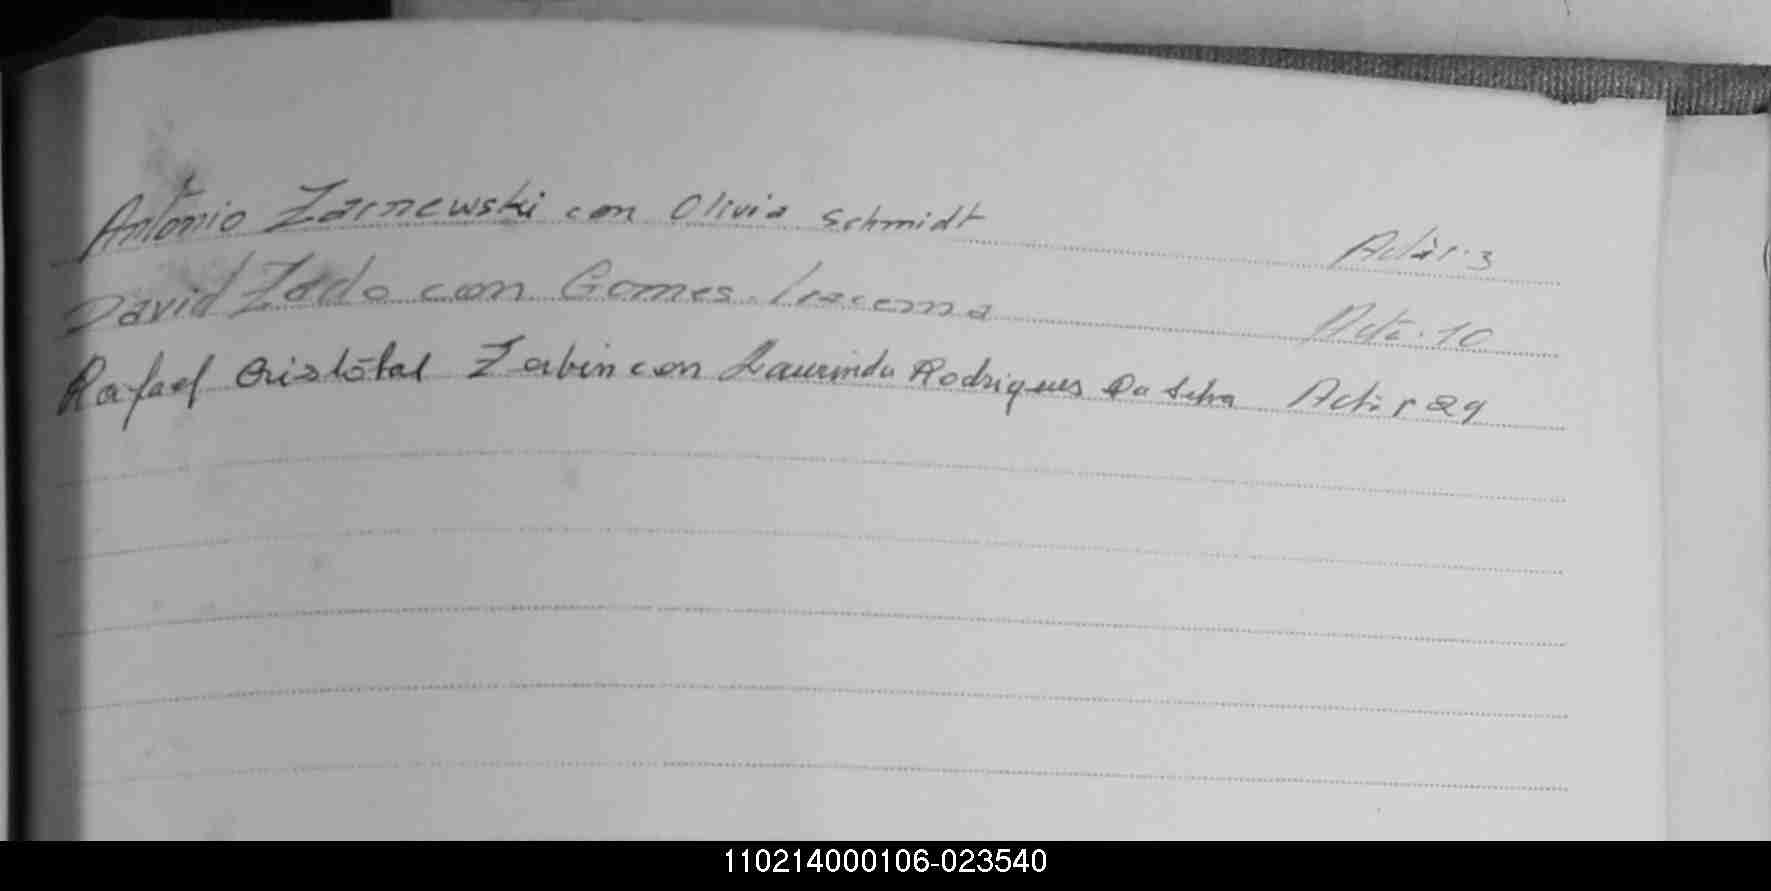 Antonio Zarnewski con Olivia Schmidt Acta: 3
David Zado con Gomes. Iracema Acta. 10
Rafael Cristóbal Zerbin con Laurinda Rodrigues Da Silva Acta r 29
110214000106-023540